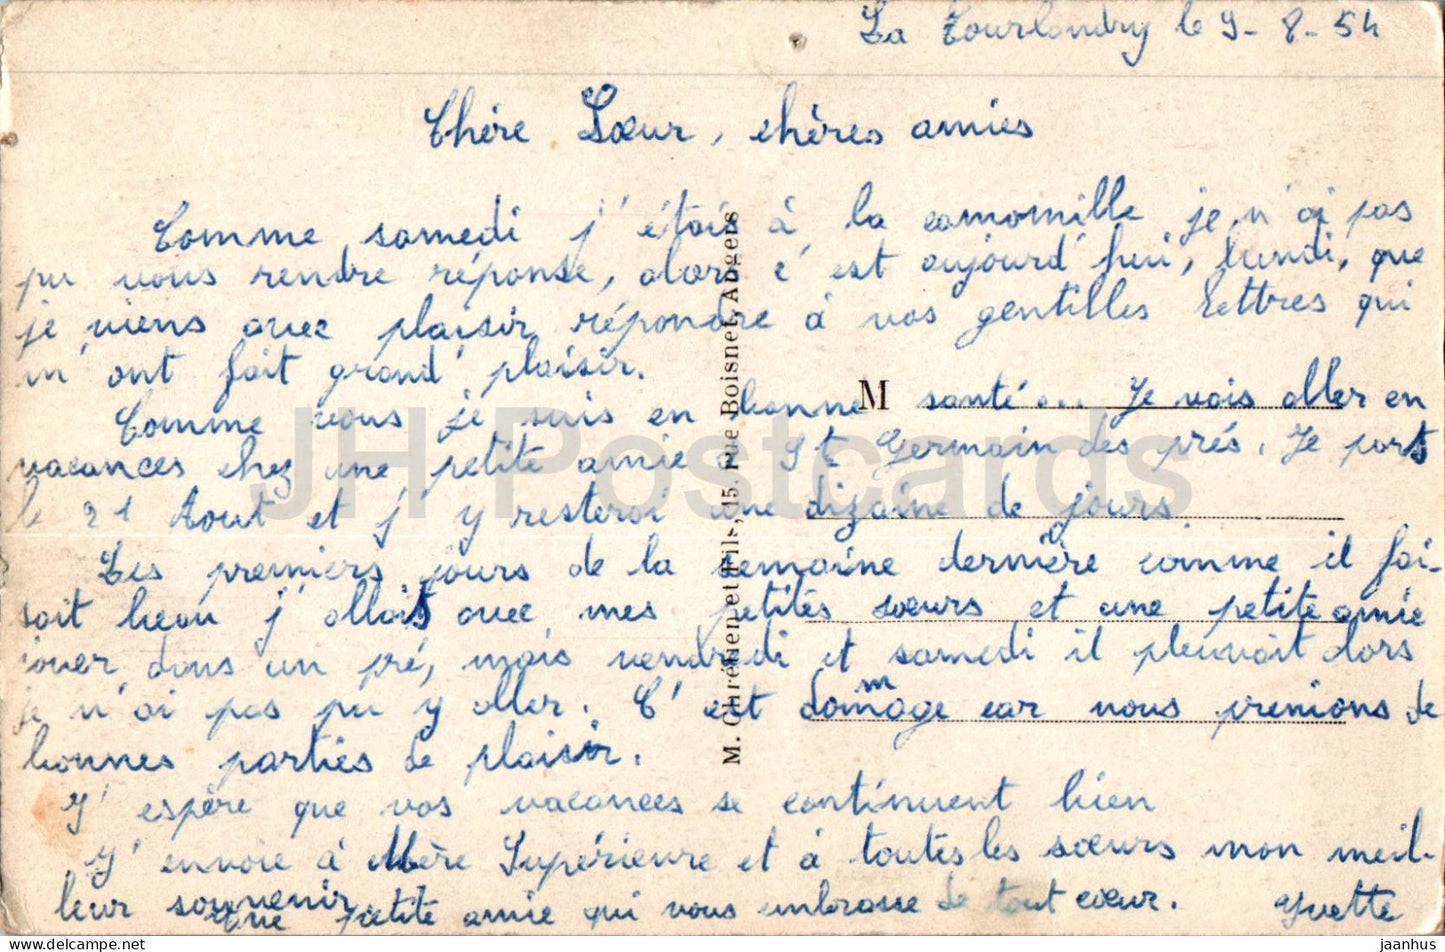 La Tourlandry le 9-8-54
Chère Sœur, chères amies
Comme samedi j'étais à la camomille je n'ai pas
pu vous rendre réponse, alors c'est aujourd'hui, lundi, que
je viens avec plaisir répondre à vos gentilles lettres qui
m'ont fait grand plaisir.
Comme vous je suis en bonne santé... Je vais aller en
vacances chez une petite amie St Germain des prés. Je pars
le 21 Aout et j'y resterai une dizaine de jours.
Les premiers jours de la semaine dernière comme il fai-
sait beau j'allais avec mes petites sœurs et une petite amie
jouer dans un pré, mais vendredi et samedi il pleuvait alors
je n'ai pas pu y aller. C'est dommage car nous prenions de
bonnes parties de plaisir.
J'espère que vos vacances se continuent bien
J'envoie à Mère Supérieure et à toutes les sœurs mon meil-
leur souvenir.
Une petite amie qui vous embrasse de tout cœur. Yvette
M
M. Chrétien et Fils, 15, rue Boisnet, Angers
JH Postcards
jaanhus - delcampe.net